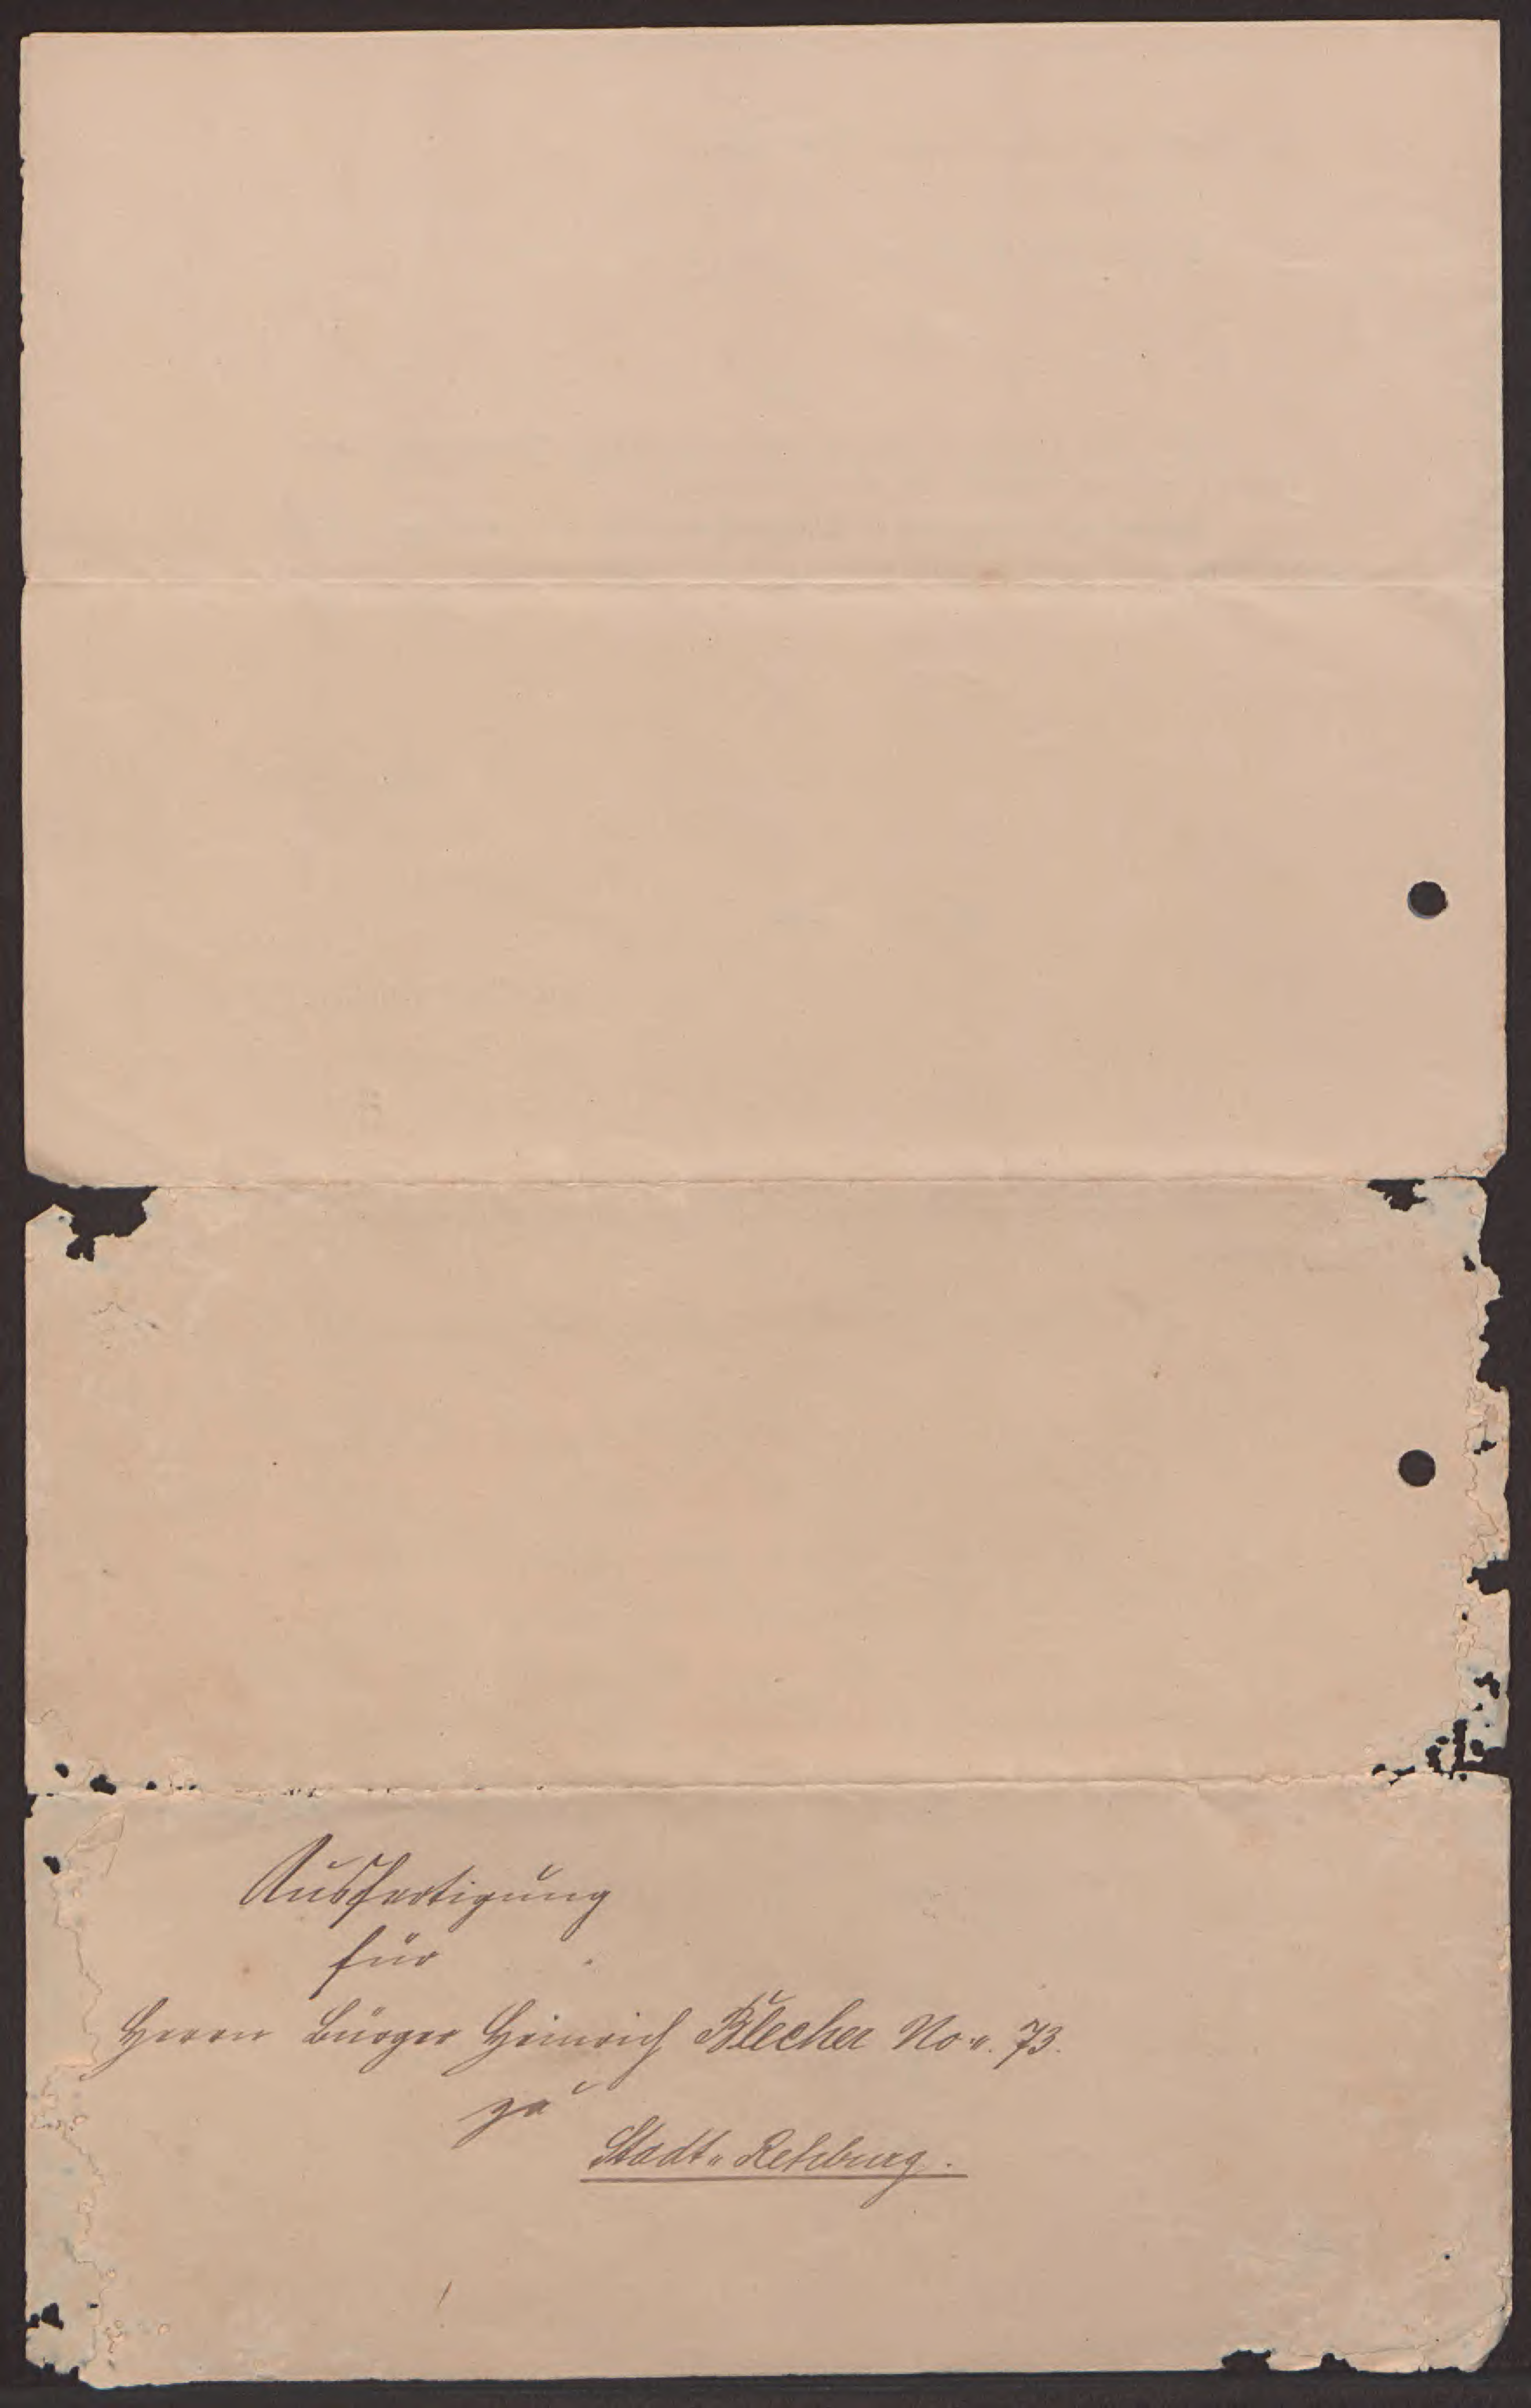 Ausfertigung
für
Herrn Bürger Heinrich Blecher No. 73.
zu
Stadt-Rehburg.